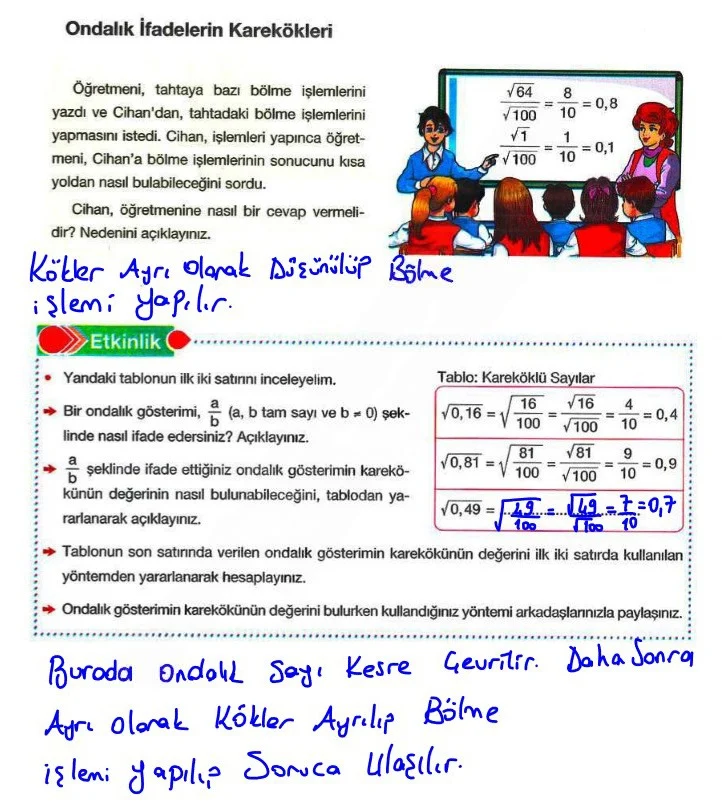 Ondalık İfadelerin Karekökleri
Öğretmeni, tahtaya bazı bölme işlemlerini
yazdı ve Cihan'dan, tahtadaki bölme işlemlerini
yapmasını istedi. Cihan, işlemleri yapınca öğret-
meni, Cihan'a bölme işlemlerinin sonucunu kısa
yoldan nasıl bulabileceğini sordu.
Cihan, öğretmenine nasıl bir cevap vermeli-
dir? Nedenini açıklayınız.
√64/√100 = 8/10 = 0,8
√1/√100 = 1/10 = 0,1
Kökler Ayrı olarak Düşünülüp Bölme
işlemi yapılır.
Etkinlik
• Yandaki tablonun ilk iki satırını inceleyelim.
Bir ondalık gösterimi, a/b (a, b tam sayı ve b ≠ 0) şek-
linde nasıl ifade edersiniz? Açıklayınız.
a/b şeklinde ifade ettiğiniz ondalık gösterimin karekö-
künün değerinin nasıl bulunabileceğini, tablodan ya-
rarlanarak açıklayınız.
Tablo: Kareköklü Sayılar
√0,16 = √(16/100) = √16/√100 = 4/10 = 0,4
√0,81 = √(81/100) = √81/√100 = 9/10 = 0,9
√0,49 = √(49/100) = √49/√100 = 7/10 = 0,7
Tablonun son satırında verilen ondalık gösterimin karekökünün değerini ilk iki satırda kullanılan
yöntemden yararlanarak hesaplayınız.
Ondalık gösterimin karekökünün değerini bulurken kullandığınız yöntemi arkadaşlarınızla paylaşınız.
Burada ondalık sayı kesre Çevrilir. Daha Sonra
Ayrı olarak Kökler Ayrılıp Bölme
işlemi yapılıp Sonuca Ulaşılır.